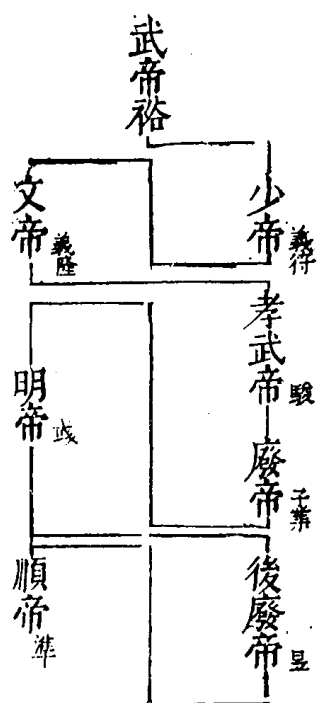 武帝裕
少帝 義符
文帝 義隆
孝武帝 駿
廢帝 子業
明帝 彧
後廢帝 昱
順帝 準